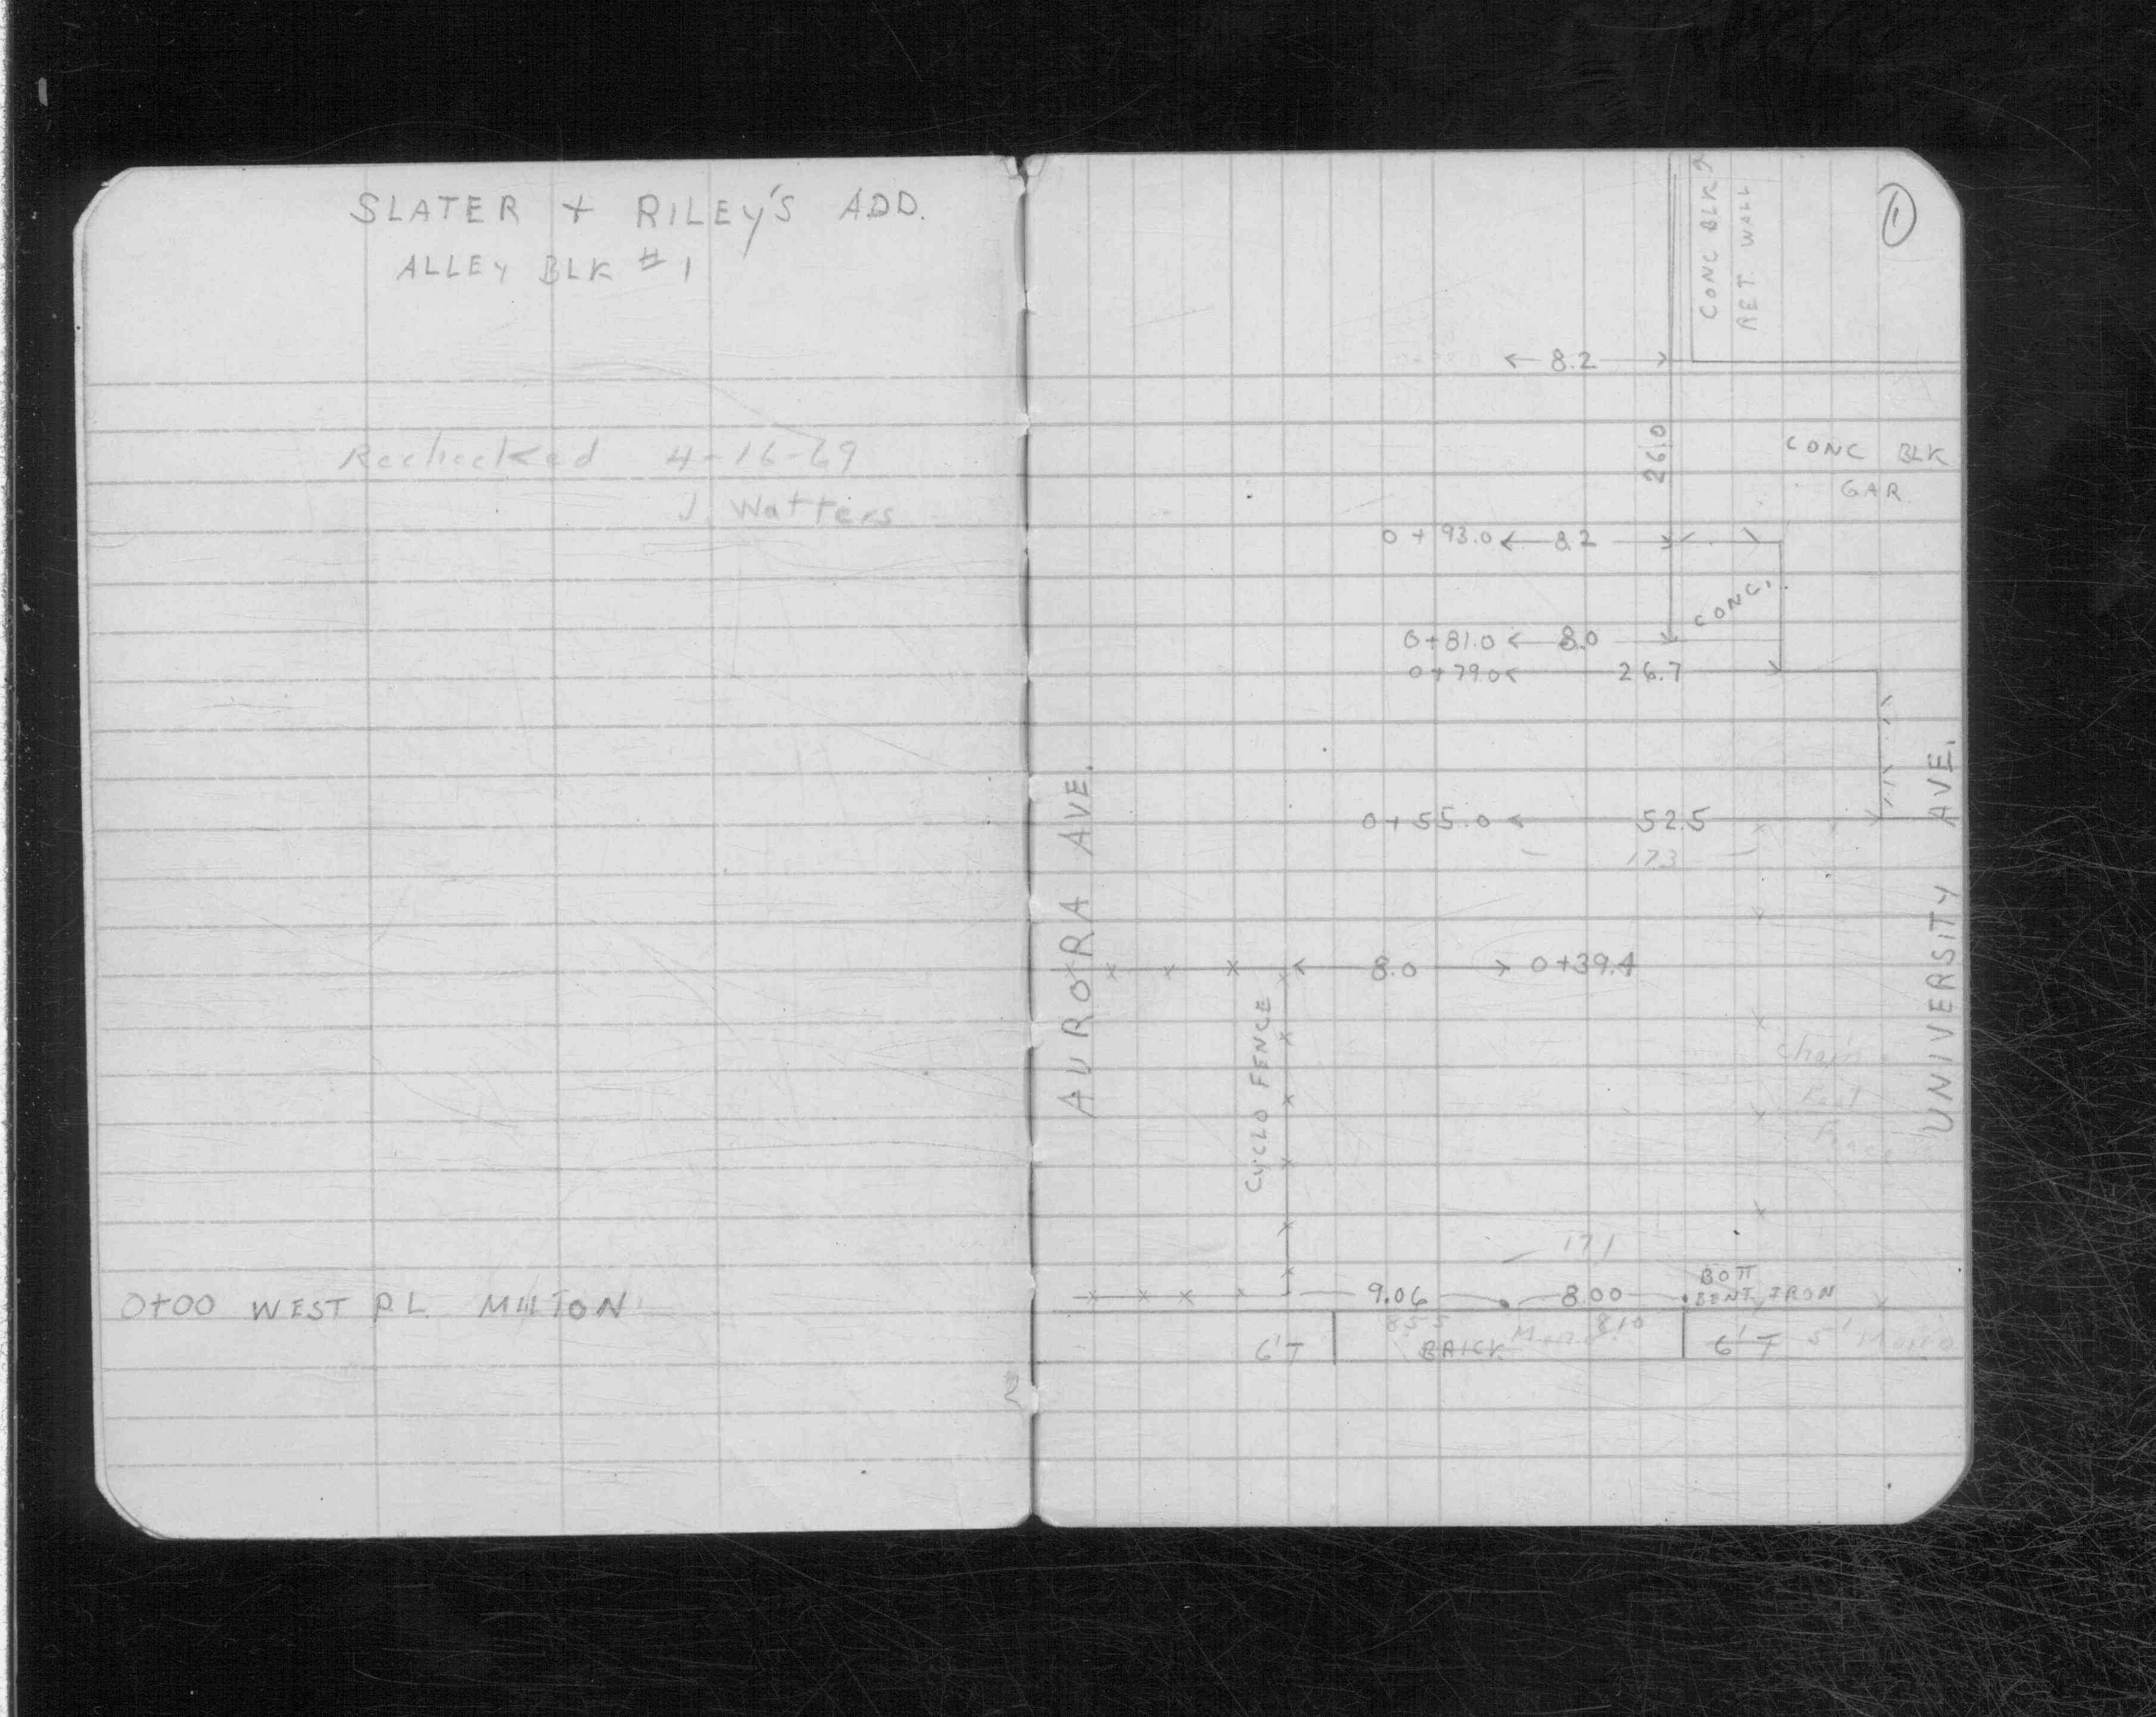 SLATER + RILEY'S ADD.
ALLEY BLK #1
Rechecked 4-16-69
J. Watters
0+00 WEST P.L. MILTON
1
CONC BLK
RET. WALL
8.2
26.0
CONC BLK
GAR.
0+93.0 8.2
CONC.
0+81.0 8.0
0+79.0 26.7
AURORA AVE.
UNIVERSITY AVE.
0+55.0 52.5
173
8.0 0+39.4
CYCLO FENCE
Chain
Post
Fence
171
9.06 8.00 BOTT
BENT IRON
8.55 8.10
6'T BRICK Mono 6'T 5' Mono